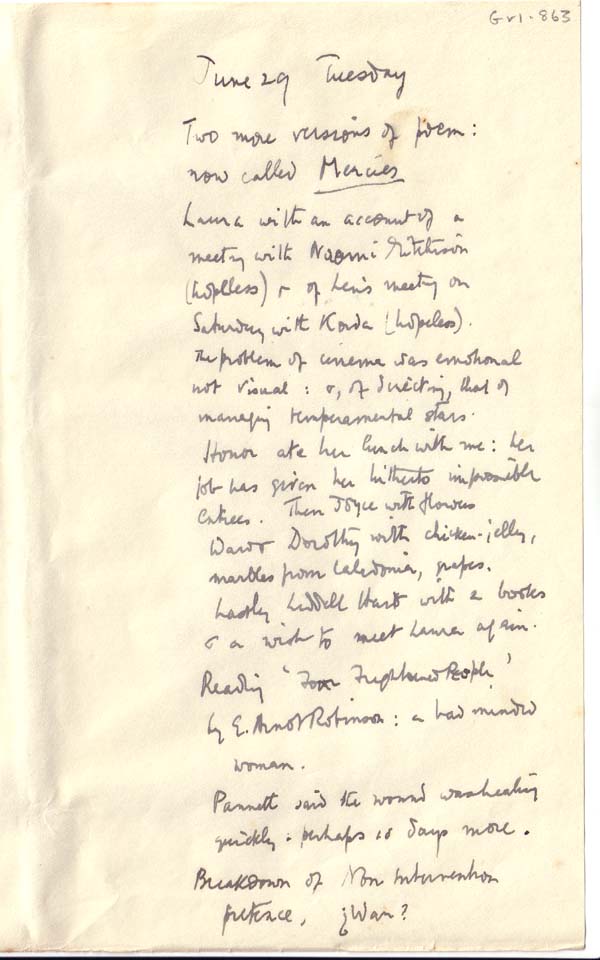 Gr1-863
June 29 Tuesday
Two more versions of poem:
now called Mercies
Laura with an account of a
meeting with Naomi Mitchison
(hopeless) & of Len's meeting on
Saturday with Korda (hopeless).
The problem of cinema was emotional
not visual: or, of directing, that of
managing temperamental stars.
Honor ate her lunch with me: her
job has given her hitherto impossible
entrees. Then Joyce with flowers
Ward & Dorothy with chicken-jelly,
marbles from Caledonia, grapes.
Lastly Liddell Hart with 2 books
& a wish to meet Laura again.
Reading 'Four Frightened People'
by E. Arnot Robinson: a bad minded
woman.
Pannett said the wound was healing
quickly: perhaps 10 days more.
Breakdown of Non Intervention
pretence, ¿War?